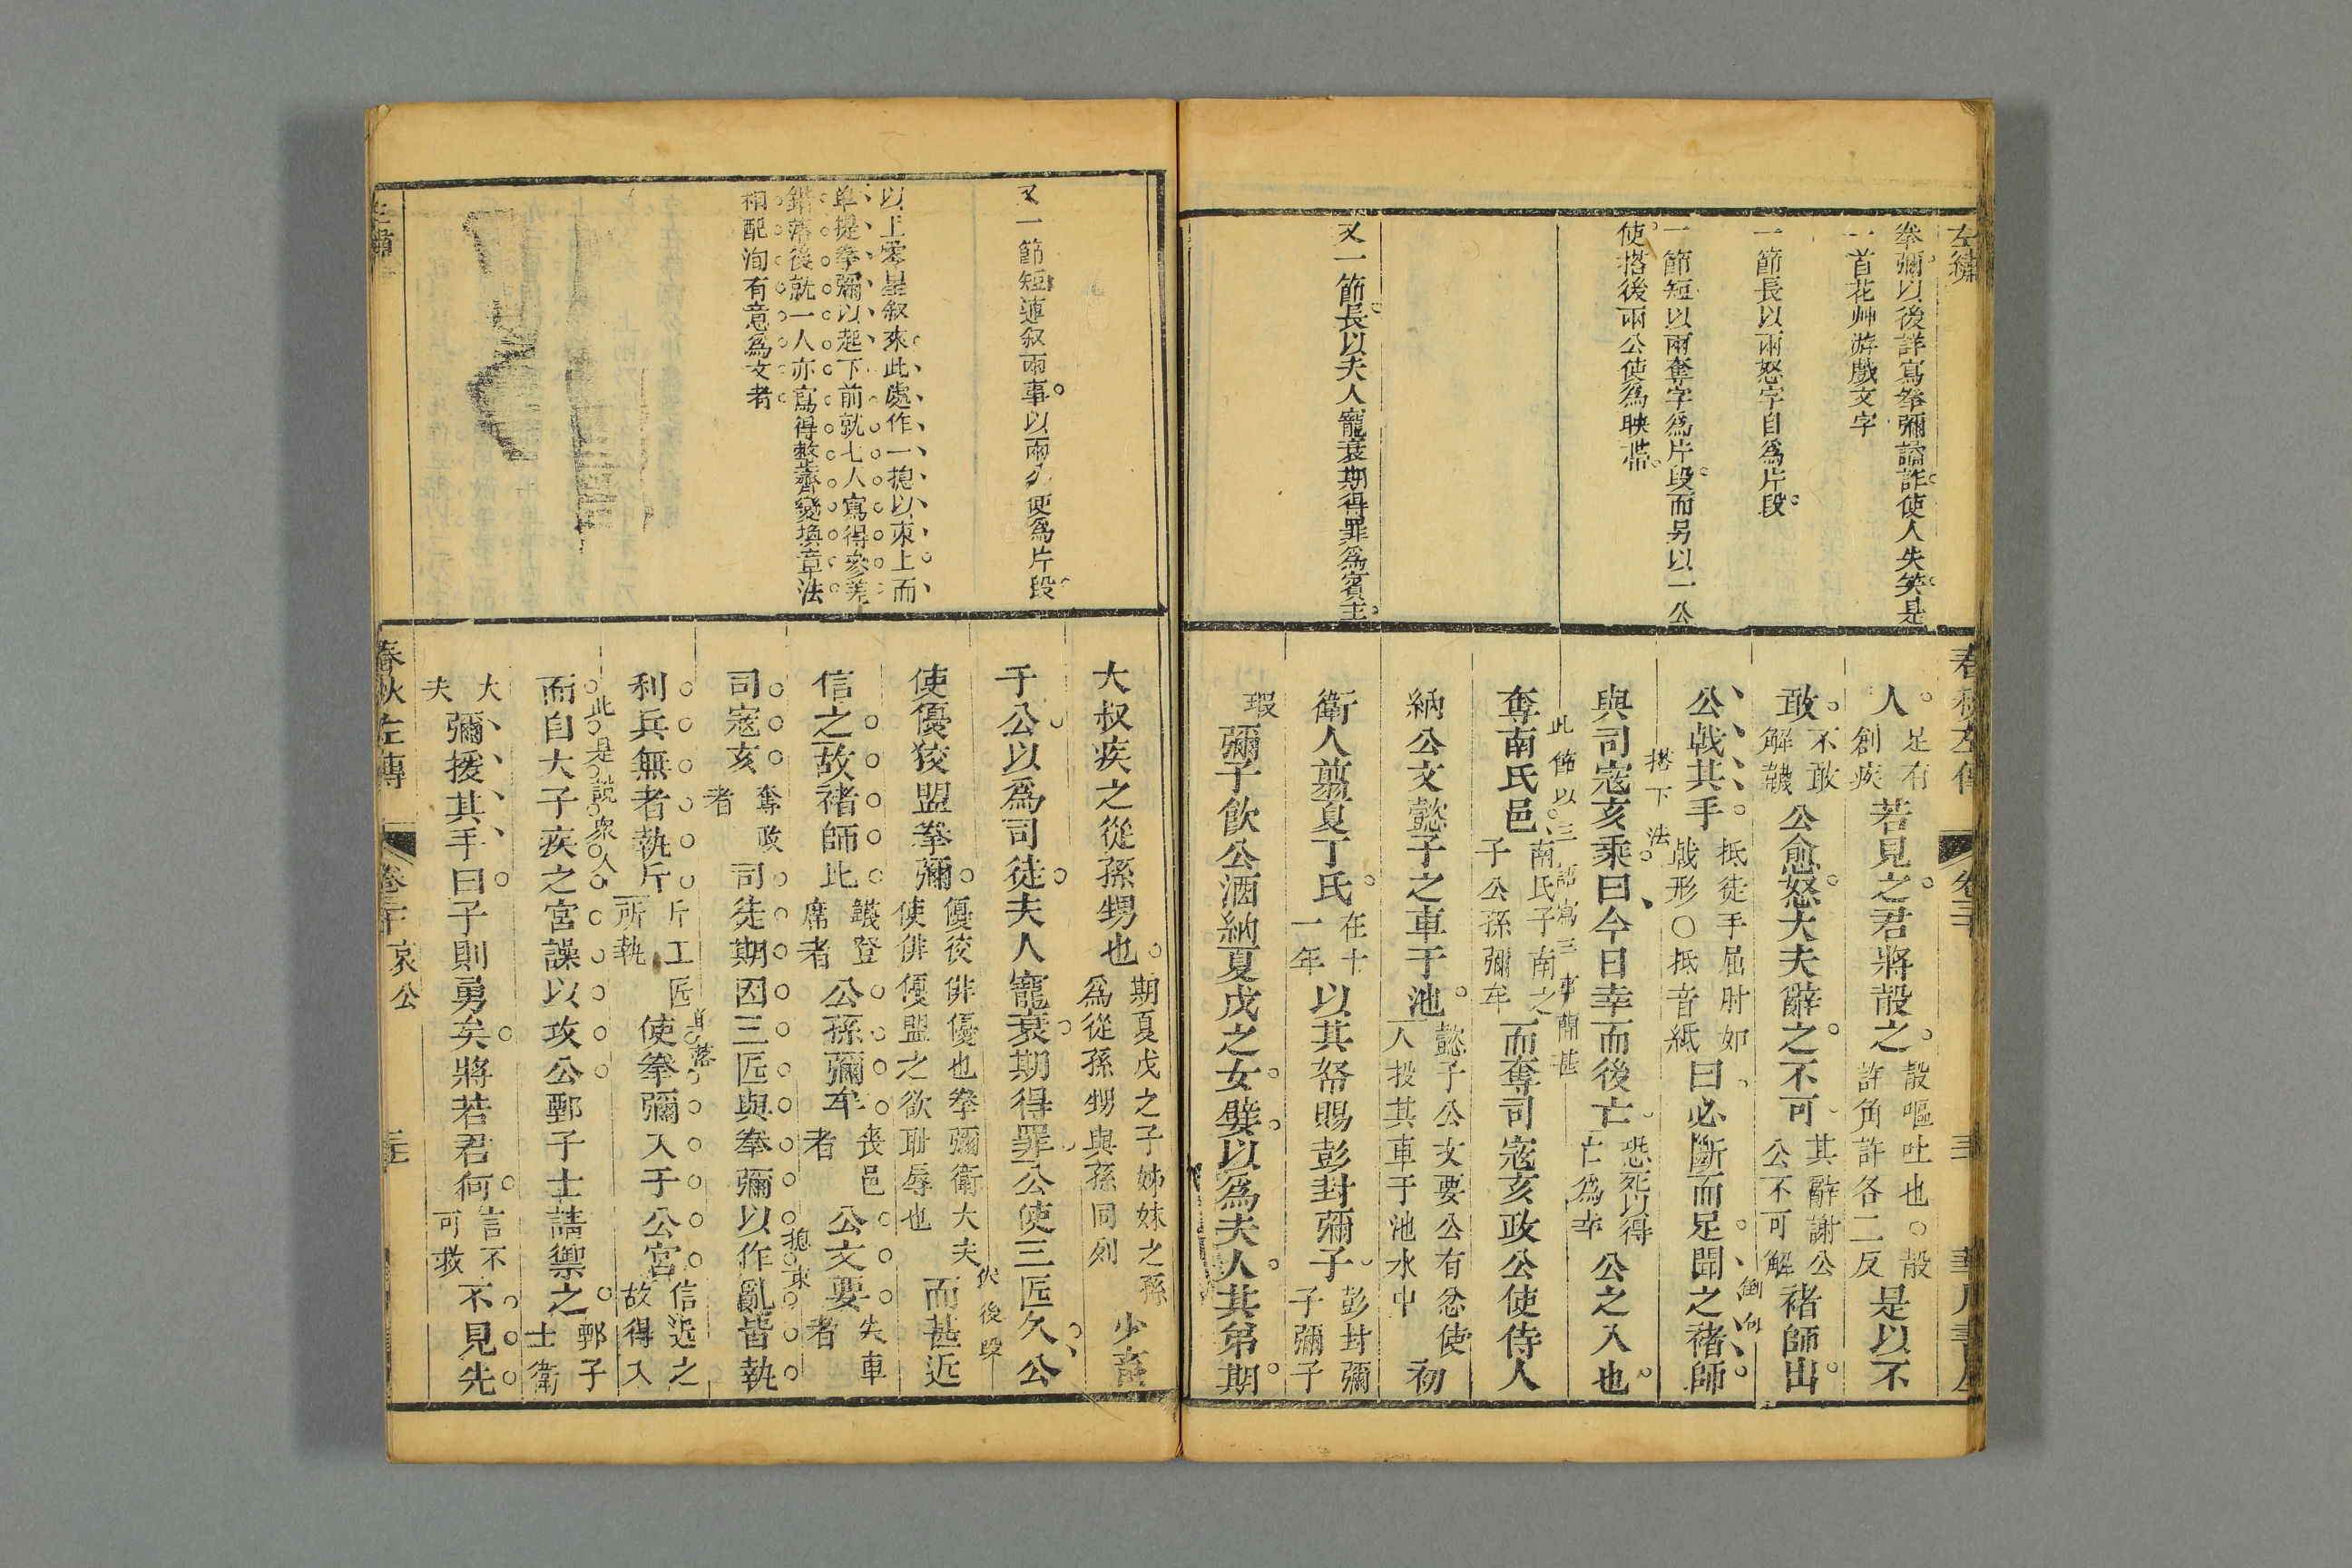 左繡
拳彌以後詳寫拳彌譎詐使人失笑是
一首花艸游戲文字
一節長以兩怒字自為片段
一節短以兩奪字為片段而另以一公
使搭後兩公使為映帶
又一節長以夫人寵衰期得罪為賓主
春秋左傳 卷三十 華川書屋
人足有創疾若見之君將㱿之㱿嘔吐也○㱿許角許各二反是以不
敢不敢解韤公愈怒大夫辭之不可其辭謝公公不可解褚師出
公戟其手抵徒手屈肘如戟形○抵音紙曰必斷而足聞之褚師
倒句
與司寇亥乘曰今日幸而後亡恐死以得亡為幸公之入也
搭下法
奪南氏邑南氏子南之子公孫彌牟而奪司寇亥政公使侍人
此節以三語寫三事簡甚
納公文懿子之車于池懿子公文要公有忿使人投其車于池水中初
衛人翦夏丁氏在十一年以其帑賜彭封彌子彭封彌子彌子
瑕彌子飲公酒納夏戊之女嬖以為夫人其弟期
又一節短連叙兩事以兩久便為片段
以上零星叙來此處作一摠以束上而
單提拳彌以起下前就七人寫得參差
錯落後就一人亦寫得整齊變換章法
相配洵有意為文者
大叔疾之從孫甥也期夏戊之子姊妹之孫為從孫甥與孫同列少畜
于公以為司徒夫人寵衰期得罪公使三匠久公
使優狡盟拳彌優狡俳優也拳彌衛大夫使俳優盟之欲耻辱也而甚近
伏後段
信之故褚師比韤登席者公孫彌牟喪邑者公文要失車者
司寇亥奪政者司徒期因三匠與拳彌以作亂皆執
摠束
利兵無者執斤斤工匠所執使拳彌入于公宮信近之故得入
而自大子疾之宮譟以攻公鄄子士請禦之鄄子士衛
此是説衆人
大夫彌援其手曰子則勇矣將若君何言不可救不見先
春秋左傳 卷三十 哀公